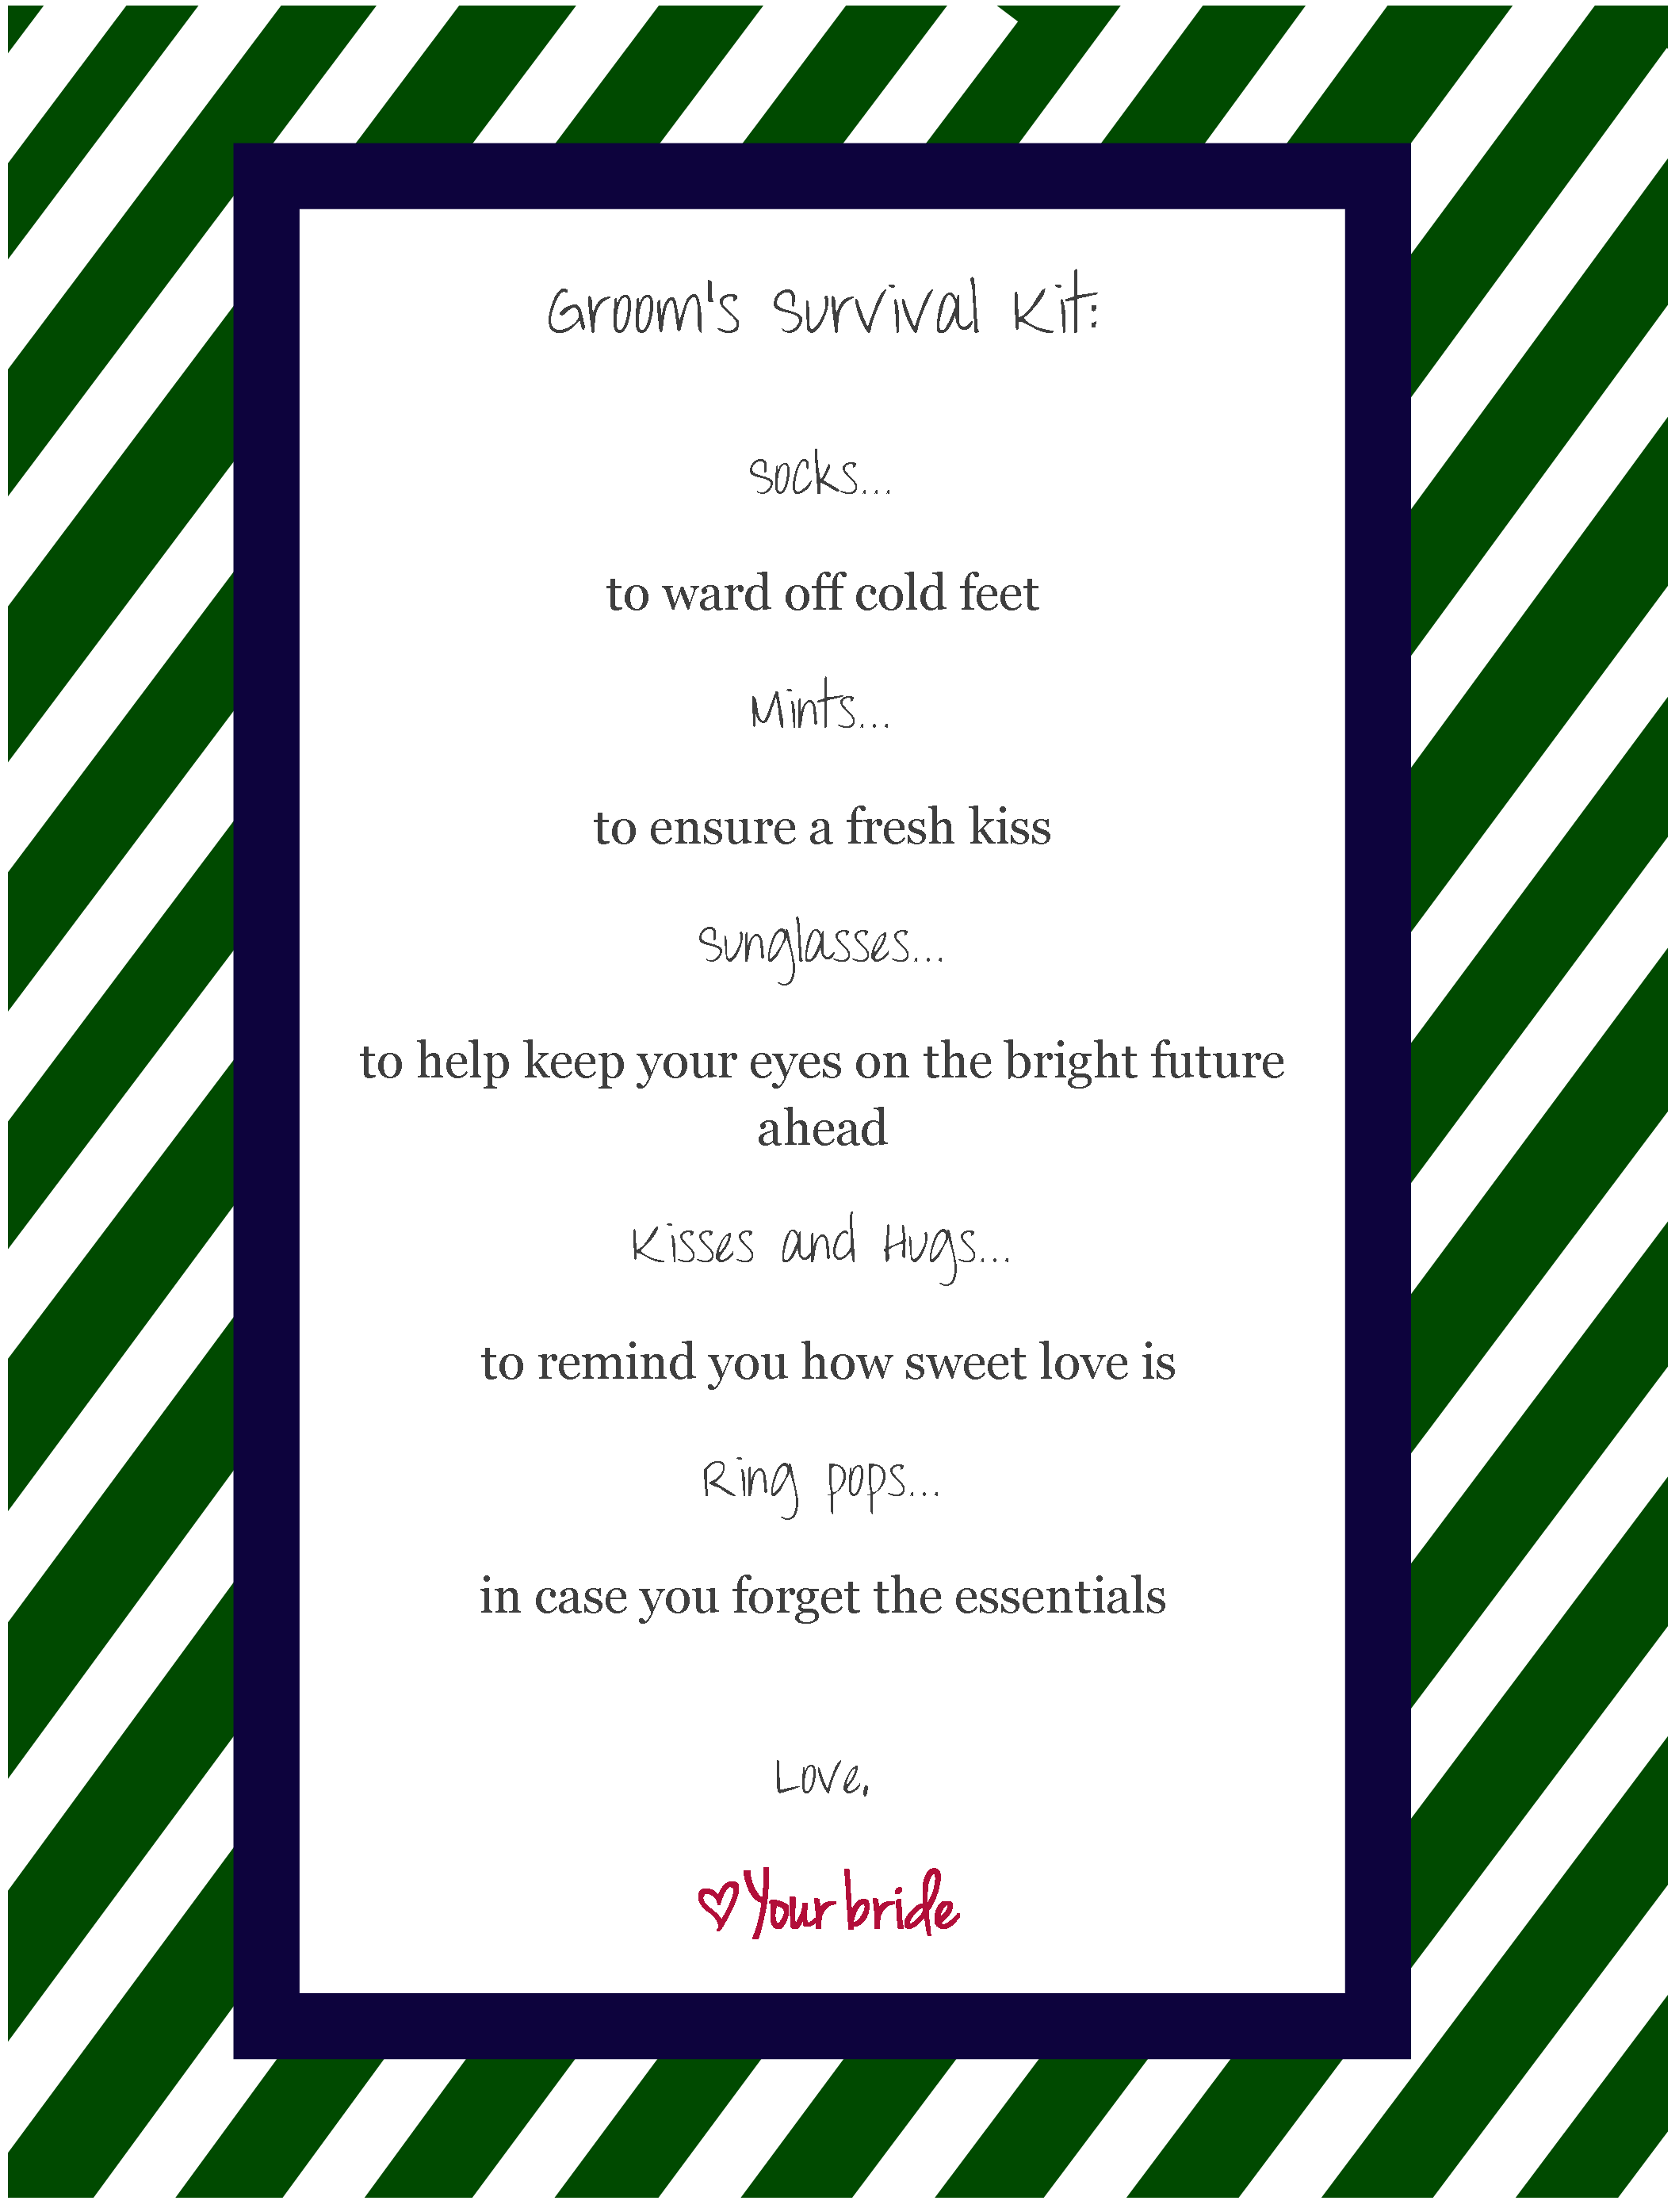 Groom's Survival Kit:
Socks...
to ward off cold feet
Mints...
to ensure a fresh kiss
Sunglasses...
to help keep your eyes on the bright future
ahead
Kisses and Hugs...
to remind you how sweet love is
Ring pops...
in case you forget the essentials
Love,
♡Your bride